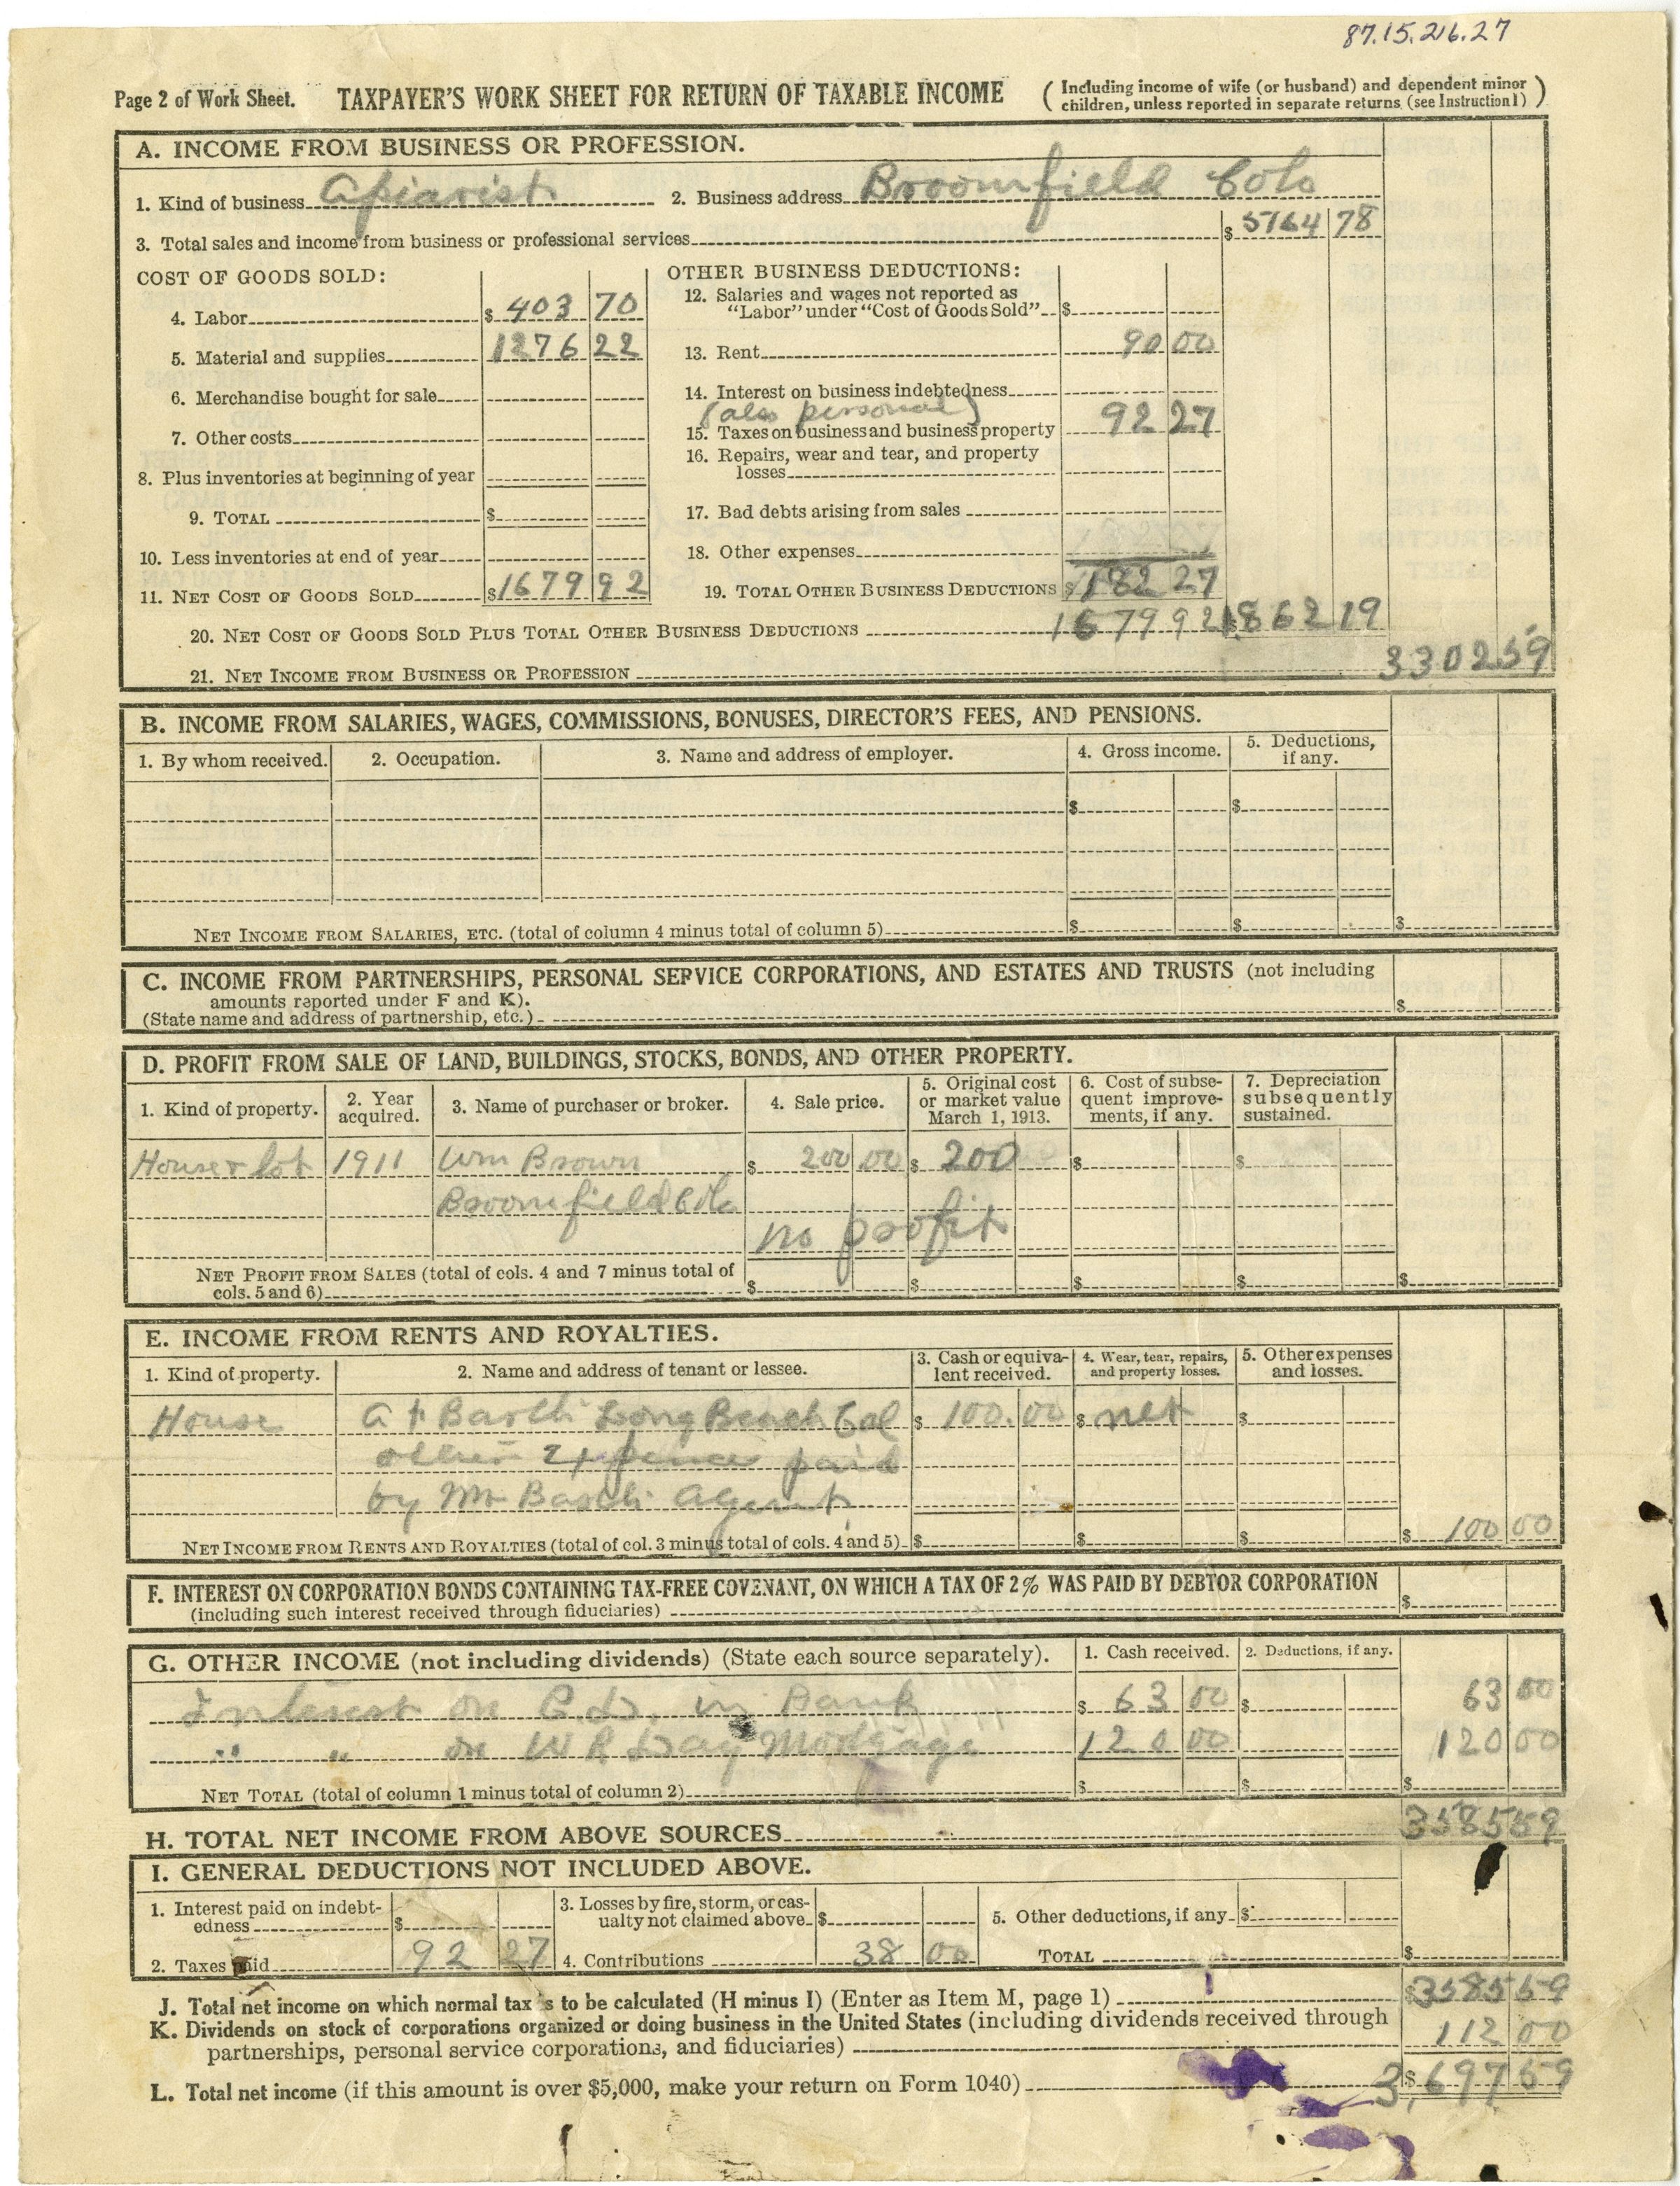 87.15.216.27
Page 2 of Work Sheet. TAXPAYER'S WORK SHEET FOR RETURN OF TAXABLE INCOME (Including income of wife (or husband) and dependent minor
children, unless reported in separate returns (see Instruction 1))
A. INCOME FROM BUSINESS OR PROFESSION.
1. Kind of business Apiarist 2. Business address Broomfield Colo
3. Total sales and income from business or professional services $ 5164 78
COST OF GOODS SOLD:
4. Labor $ 403 70
5. Material and supplies 1276 22
6. Merchandise bought for sale
7. Other costs
8. Plus inventories at beginning of year
9. TOTAL $
10. Less inventories at end of year
11. NET COST OF GOODS SOLD $ 1679 92
OTHER BUSINESS DEDUCTIONS:
12. Salaries and wages not reported as
"Labor" under "Cost of Goods Sold" $
13. Rent 90 00
14. Interest on business indebtedness
(also personal)
15. Taxes on business and business property 92 27
16. Repairs, wear and tear, and property
losses
17. Bad debts arising from sales
18. Other expenses
19. TOTAL OTHER BUSINESS DEDUCTIONS $ 182 27
20. NET COST OF GOODS SOLD PLUS TOTAL OTHER BUSINESS DEDUCTIONS 1679 92 $ 1862 19
21. NET INCOME FROM BUSINESS OR PROFESSION 3302 59
B. INCOME FROM SALARIES, WAGES, COMMISSIONS, BONUSES, DIRECTOR'S FEES, AND PENSIONS.
1. By whom received. 2. Occupation. 3. Name and address of employer. 4. Gross income. 5. Deductions,
if any.
$ $
NET INCOME FROM SALARIES, ETC. (total of column 4 minus total of column 5) $ $ $
C. INCOME FROM PARTNERSHIPS, PERSONAL SERVICE CORPORATIONS, AND ESTATES AND TRUSTS (not including
amounts reported under F and K).
(State name and address of partnership, etc.) $
D. PROFIT FROM SALE OF LAND, BUILDINGS, STOCKS, BONDS, AND OTHER PROPERTY.
1. Kind of property. 2. Year
acquired. 3. Name of purchaser or broker. 4. Sale price. 5. Original cost
or market value
March 1, 1913. 6. Cost of subse-
quent improve-
ments, if any. 7. Depreciation
subsequently
sustained.
House & lot 1911 Wm Brown $ 200 00 $ 200 $ $
Broomfield Colo
no profit
NET PROFIT FROM SALES (total of cols. 4 and 7 minus total of
cols. 5 and 6) $ $ $ $ $
E. INCOME FROM RENTS AND ROYALTIES.
1. Kind of property. 2. Name and address of tenant or lessee. 3. Cash or equiva-
lent received. 4. Wear, tear, repairs,
and property losses. 5. Other expenses
and losses.
House Barth Long Beach Cal $ 100.00 $ net $
other expences paid
by Mr Barth agent
NET INCOME FROM RENTS AND ROYALTIES (total of col. 3 minus total of cols. 4 and 5) $ $ $ $ 100 00
F. INTEREST ON CORPORATION BONDS CONTAINING TAX-FREE COVENANT, ON WHICH A TAX OF 2% WAS PAID BY DEBTOR CORPORATION
(including such interest received through fiduciaries) $
G. OTHER INCOME (not including dividends) (State each source separately). 1. Cash received. 2. Deductions, if any.
Interest on C.D. in Bank $ 63 00 $ 63 00
" " on W R Day Mortgage 120 00 120 00
NET TOTAL (total of column 1 minus total of column 2) $ $ $
H. TOTAL NET INCOME FROM ABOVE SOURCES 3585 59
I. GENERAL DEDUCTIONS NOT INCLUDED ABOVE.
1. Interest paid on indebt-
edness $
2. Taxes paid 92 27
3. Losses by fire, storm, or cas-
ualty not claimed above $
4. Contributions 38 00
5. Other deductions, if any $
TOTAL $
J. Total net income on which normal tax is to be calculated (H minus I) (Enter as Item M, page 1) $ 3585 59
K. Dividends on stock of corporations organized or doing business in the United States (including dividends received through
partnerships, personal service corporations, and fiduciaries) 112 00
L. Total net income (if this amount is over $5,000, make your return on Form 1040) $ 3,697 59